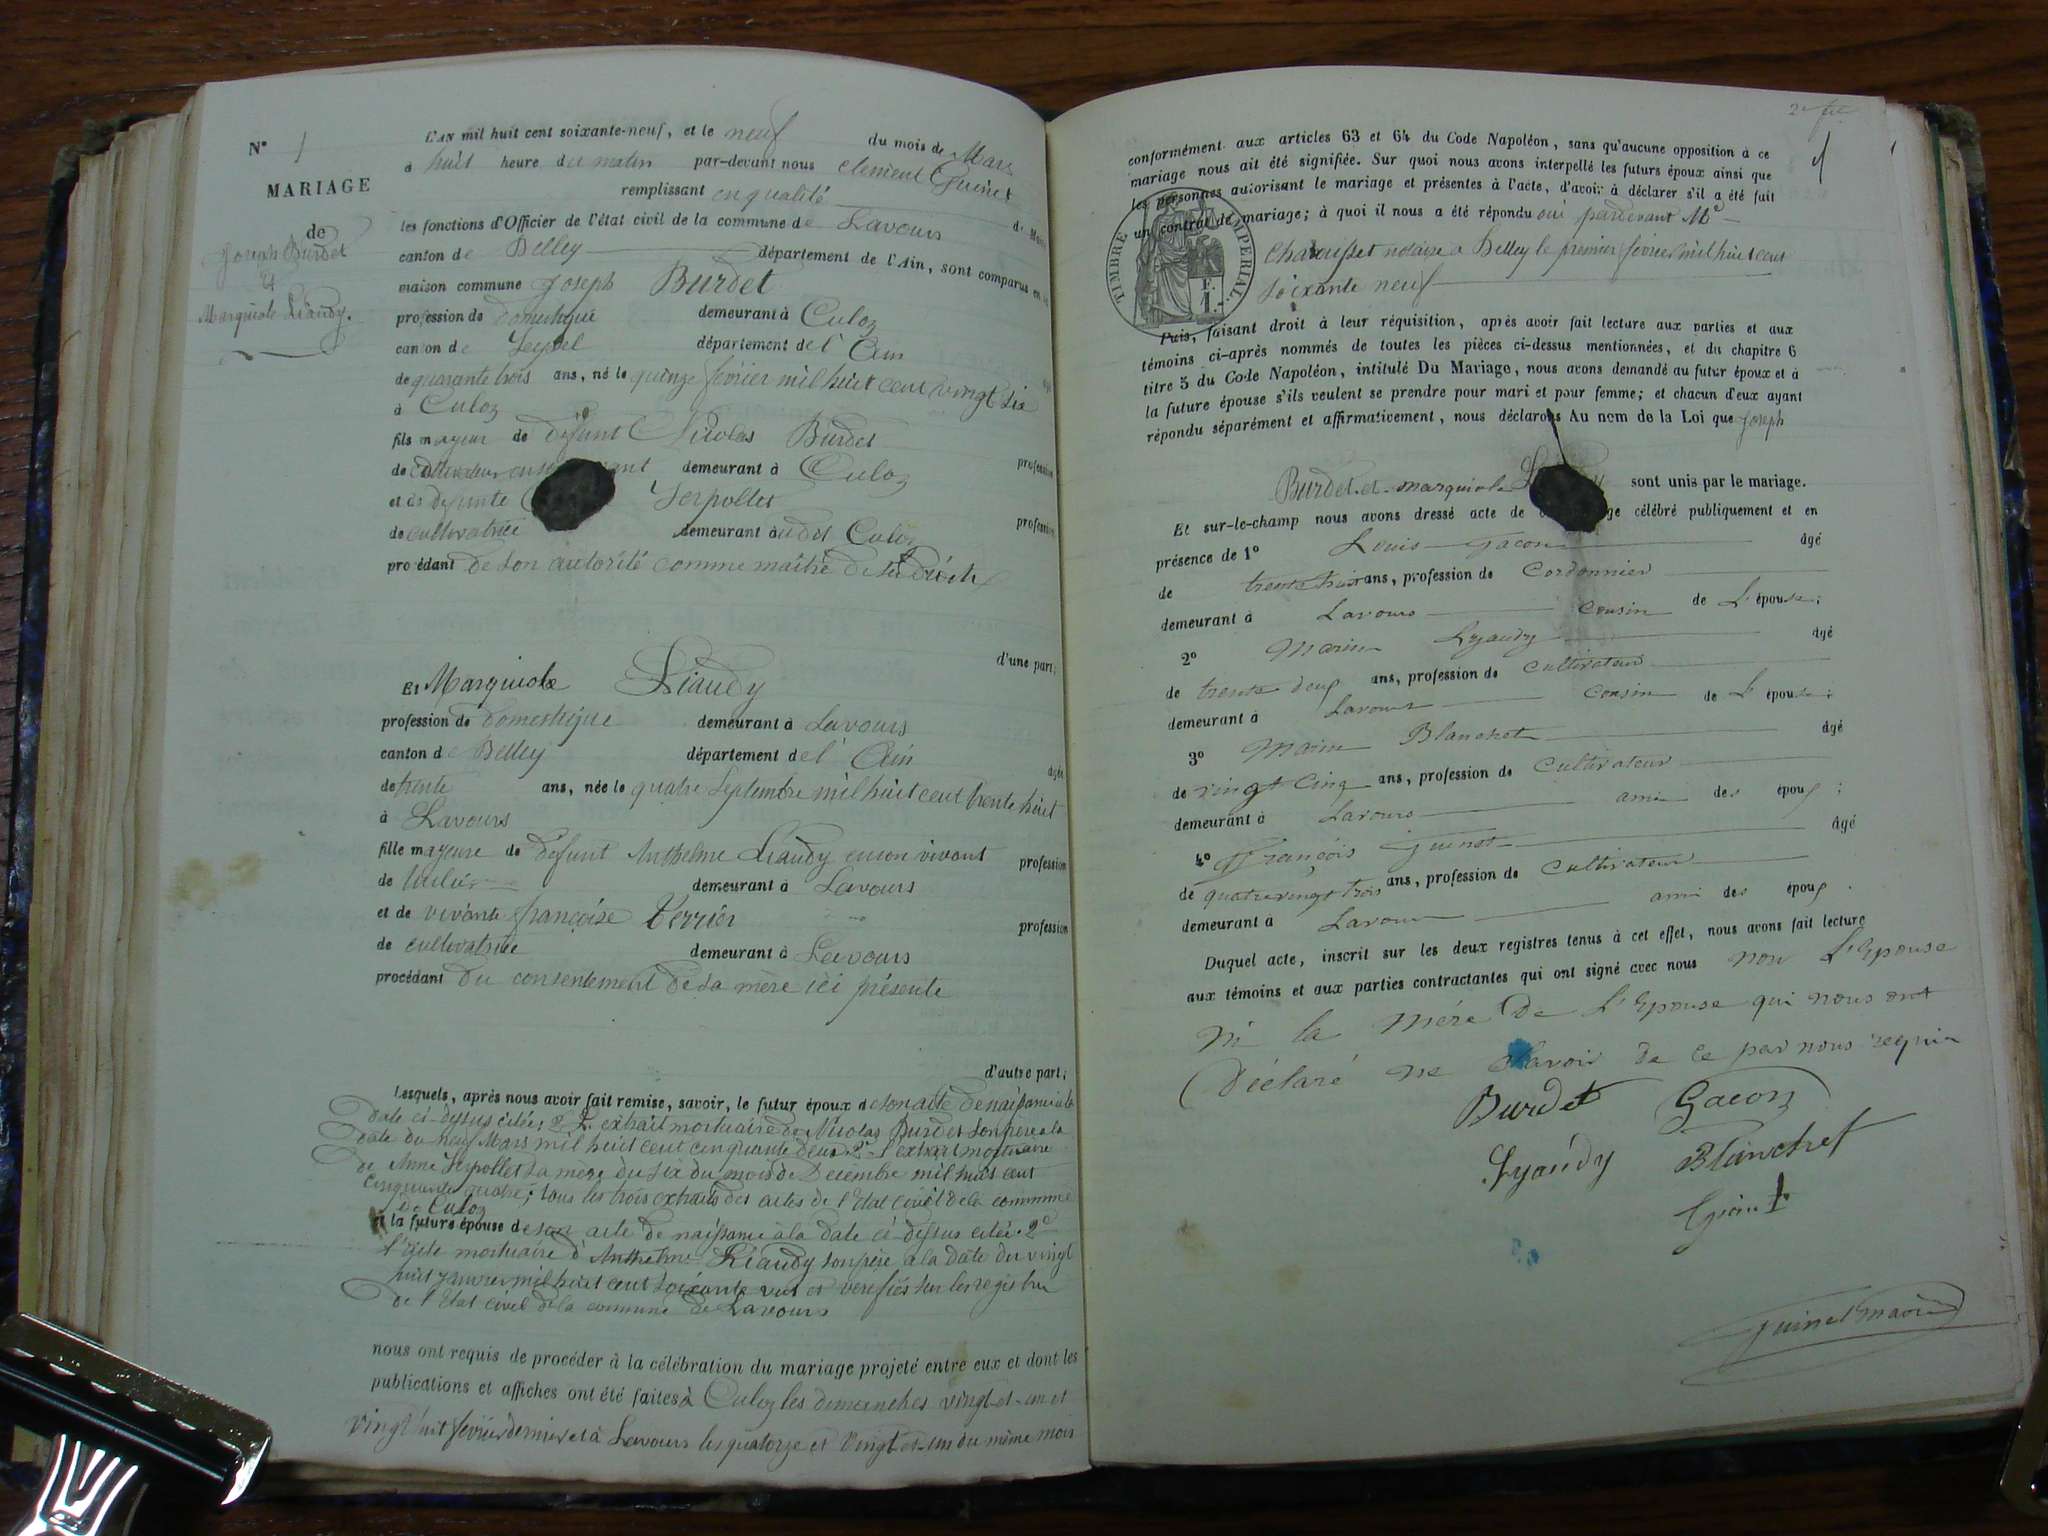 N° 1
MARIAGE
de
Joseph Burdet
Et
Marquiole Liaudy.
L'AN mil huit cent soixante-neuf, et le neuf du mois de Mars
à huit heure du matin par-devant nous Clément Guinet
remplissant en qualité de Maire
les fonctions d'Officier de l'état civil de la commune de Lavours
canton de Belley département de l'Ain, sont comparus en la
maison commune Joseph Burdet
profession de Domestique demeurant à Culoz
canton de Seyssel département de l'Ain
de quarante trois ans, né le quinze février mil huit cent vingt six
à Culoz
fils majeur de défunt Nicolas Burdet profession
de cultivateur demeurant à Culoz
et de defunte Serpollet profession
de cultivatrice demeurant audit Culoz
procédant de son autorité comme maître de ses droits
d'une part;
Et Marquiole Liaudy
profession de Domestique demeurant à Lavours
canton de Belley département de l'Ain âgée
de trente ans, née le quatre Septembre mil huit cent trente huit
à Lavours
fille majeure de défunt Anthelme Liaudy en son vivant profession
de demeurant à Lavours
et de vivante françoise Perrier profession
de cultivatrice demeurant à Lavours
procédant Du consentement de sa mère ici présente
d'autre part;
Lesquels, après nous avoir fait remise, savoir, le futur époux de son acte de naissance à la
date ci-dessus citée; 2° L'extrait mortuaire de Nicolas Burdet son père a la
date du neuf Mars mil huit cent cinquante deux 2° l'extrait mortuaire
de Anne Serpollet sa mère du six du mois de Décembre mil huit cent
cinquante quatre; tous les trois extraits des actes de l'Etat civil de la commune
de Culoz
et la future épouse de son acte de naissance à la date ci-dessus citée 2°
l'acte mortuaire d'Anthelme Liaudy son père a la date du vingt
huit janvier mil huit cent soixante vus et vérifiés sur les registres
de l'Etat civil de la commune de Lavours
nous ont requis de procéder à la célébration du mariage projeté entre eux et dont les
publications et affiches ont été faites à Culoz les dimanches vingt-et-un et
vingt huit février dernier et à Lavours les quatorze et vingt-et-un du même mois
conformément aux articles 63 et 64 du Code Napoléon, sans qu'aucune opposition à ce
mariage nous ait été signifiée. Sur quoi nous avons interpellé les futurs époux ainsi que
les personnes autorisant le mariage et présentes à l'acte, d'avoir à déclarer s'il a été fait
un contrat de mariage; à quoi il nous a été répondu oui pardevant Me
notaire a Belley le premier février mil huit cent
soixante neuf
TIMBRE IMPERIAL
1 F.
Puis, faisant droit à leur réquisition, après avoir fait lecture aux parties et aux
témoins ci-après nommés de toutes les pièces ci-dessus mentionnées, et du chapitre 6
titre 5 du Code Napoléon, intitulé Du Mariage, nous avons demandé au futur époux et à
la future épouse s'ils veulent se prendre pour mari et pour femme; et chacun d'eux ayant
répondu séparément et affirmativement, nous déclarons Au nom de la Loi que Joseph
Burdet et marquiole sont unis par le mariage.
Et sur-le-champ nous avons dressé acte de célébré publiquement et en
présence de 1° Louis Gacon âgé
de trente ans, profession de Cordonnier
demeurant à Lavours cousin de L'épouse;
2° Marin Lyaudy âgé
de trente deux ans, profession de cultivateur
demeurant à Lavours cousin de L'épouse;
3° Marin Blanchet âgé
de vingt cinq ans, profession de Cultivateur
demeurant à Lavours ami des époux;
4° François Guinet âgé
de quatrevingt trois ans, profession de Cultivateur
demeurant à Lavours ami des époux.
Duquel acte, inscrit sur les deux registres tenus à cet effet, nous avons fait lecture
aux témoins et aux parties contractantes qui ont signé avec nous non L'Epouse
ni la Mère de L'Epouse qui nous ont
Déclaré ne savoir de ce par nous requis
Burdet Gacon
Lyaudy Blanchet
Guinet maire